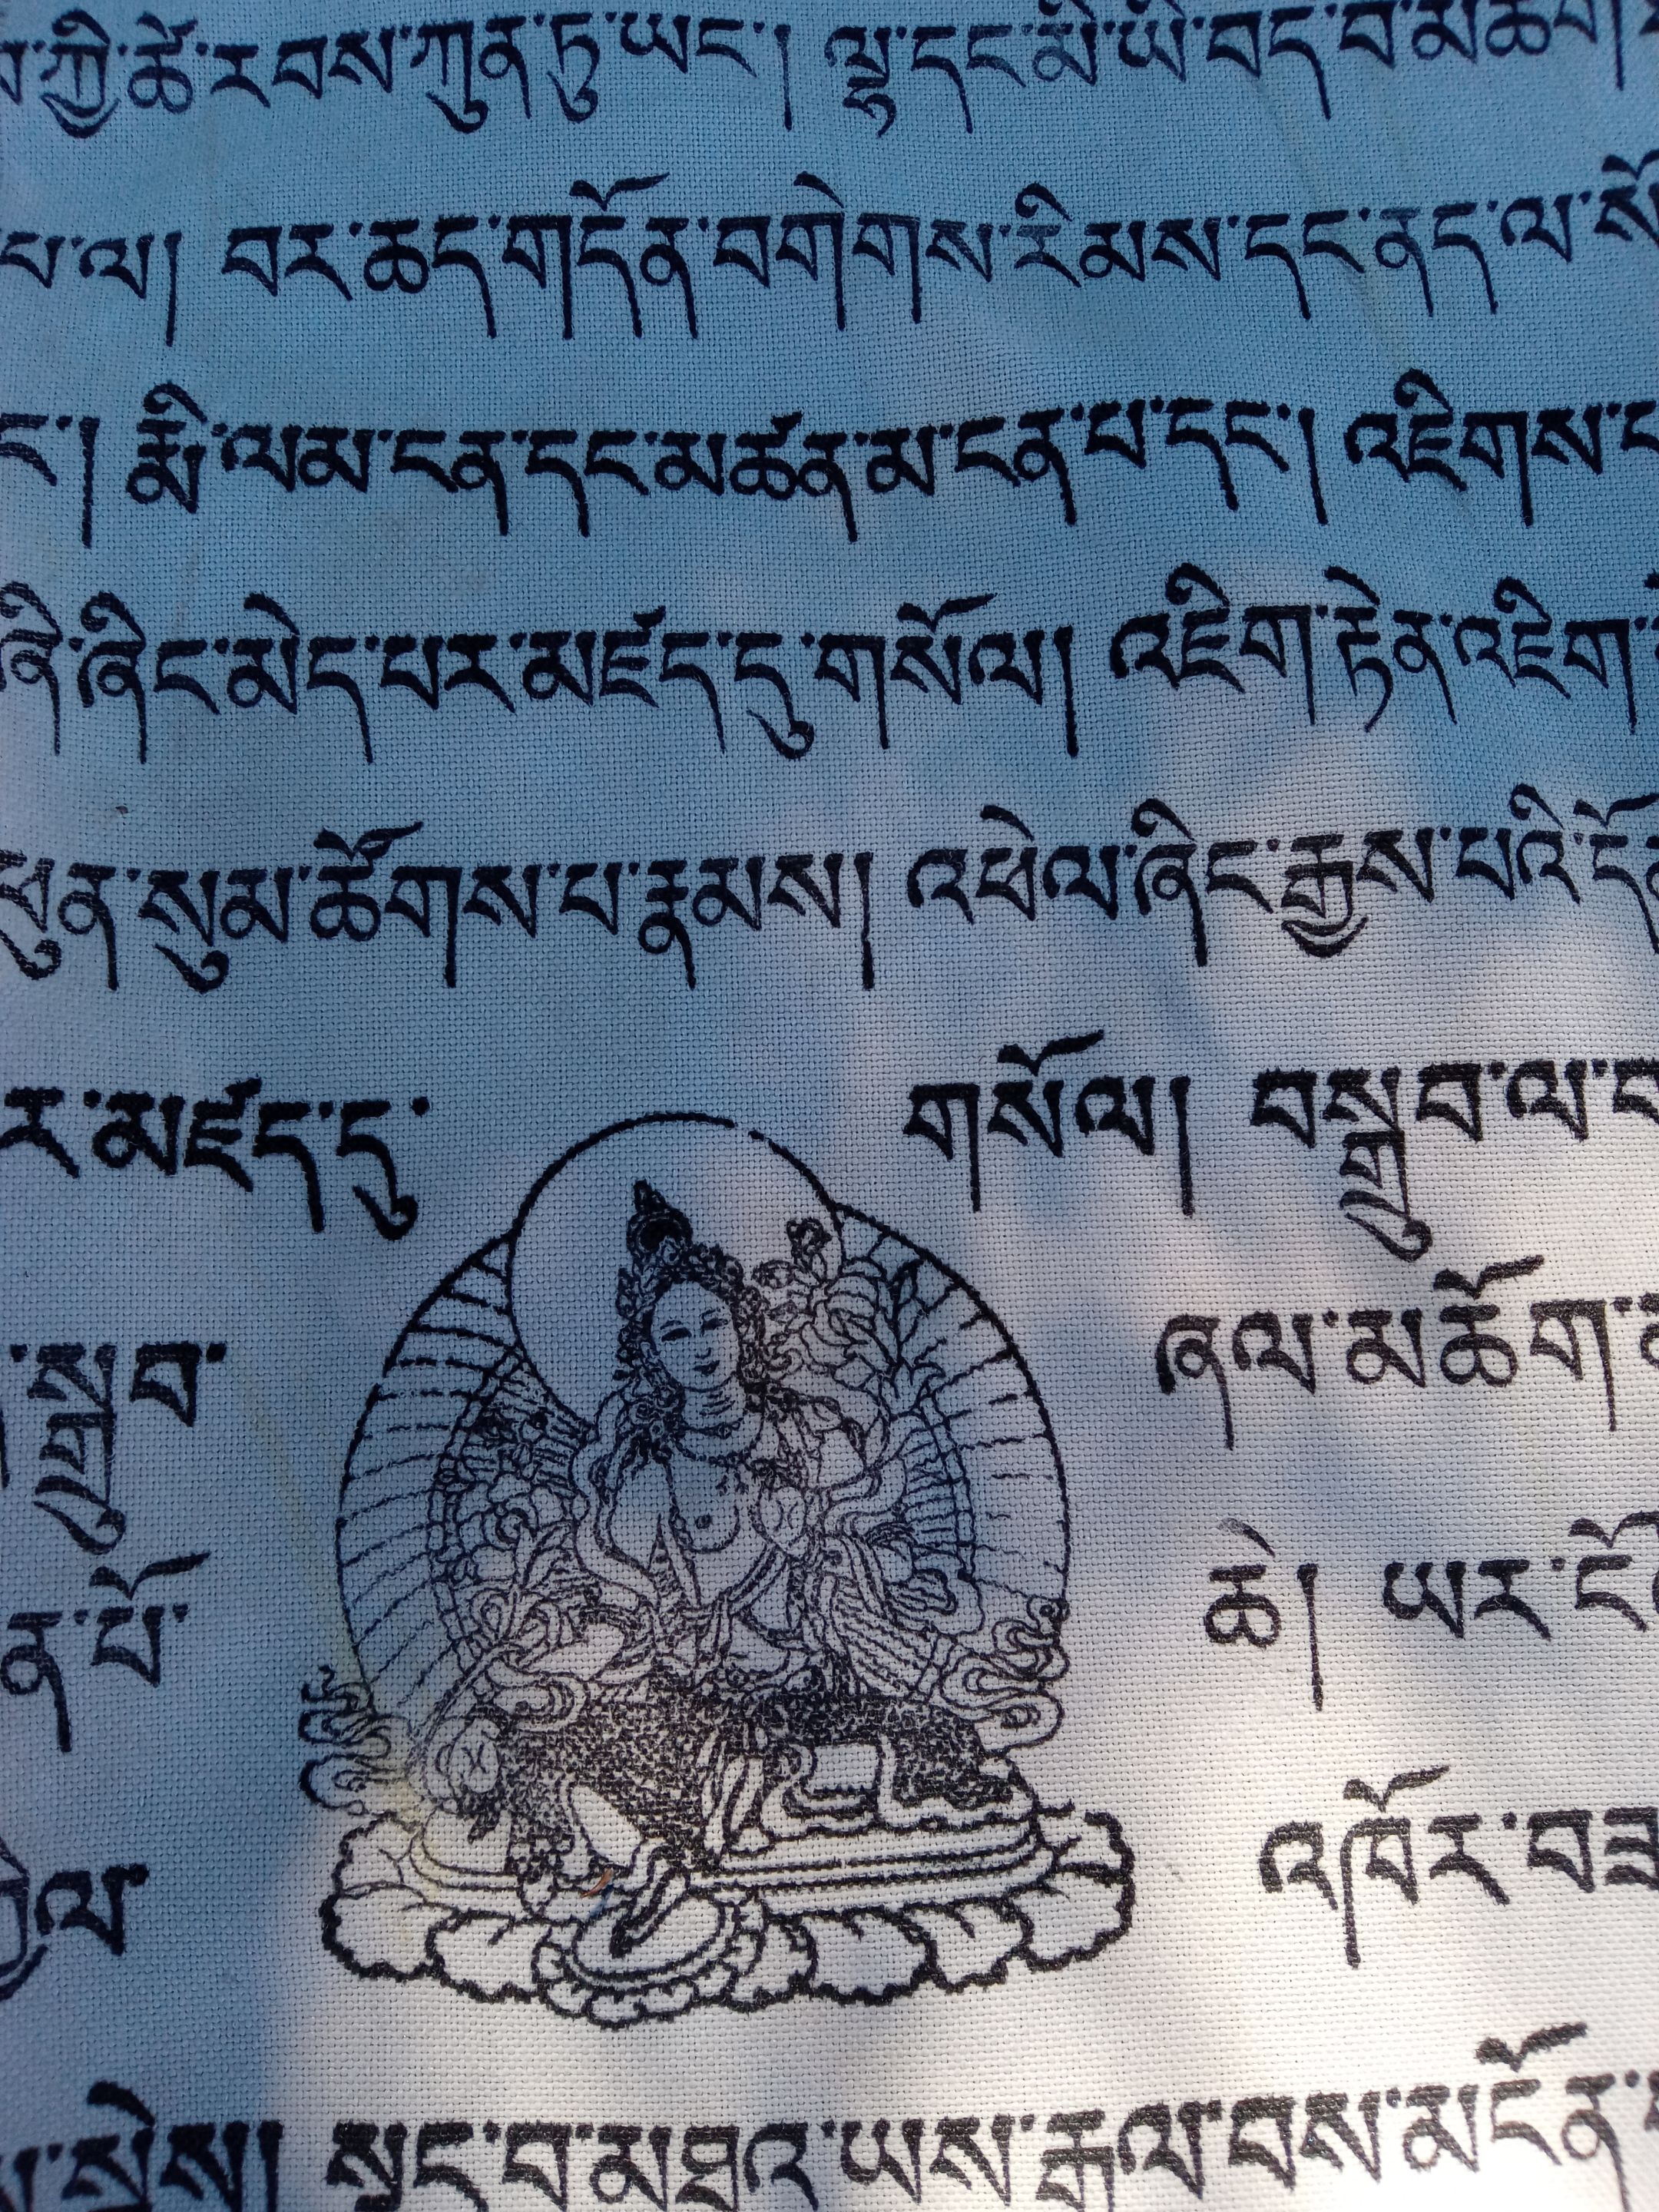 ཀྱི་ཚེ་རབས་ཀུན་ཏུ་ཡང་། ལྷ་དང་མི་ཡི་བད་བ་མ་ཆག།
པ་ལ། བར་ཆད་གདོན་བགེགས་རིམས་དང་ནད་ལ་སོ
ང་། རྨི་ལམ་ངན་དང་མཚན་མ་ངན་པ་དང་། འཇིགས་
ཞི་ཞིང་མེད་པར་མཛད་དུ་གསོལ། འཇིག་རྟེན་འཇིག་
ཕུན་སུམ་ཚོགས་པ་རྣམས། འཕེལ་ཞིང་རྒྱས་པའི་དོན
ར་མཛད་དུ་ གསོལ། བསྒྲུབ་ལ་བ
སྒྲུབ་ ཞལ་མཆོག་
ན་པོ་ ཆེ། ཡར་ངོ
འཁོར་བཟ
སྲེས། སྣང་བ་མཐའ་ཡས་རྒྱལ་བས་མངོན་